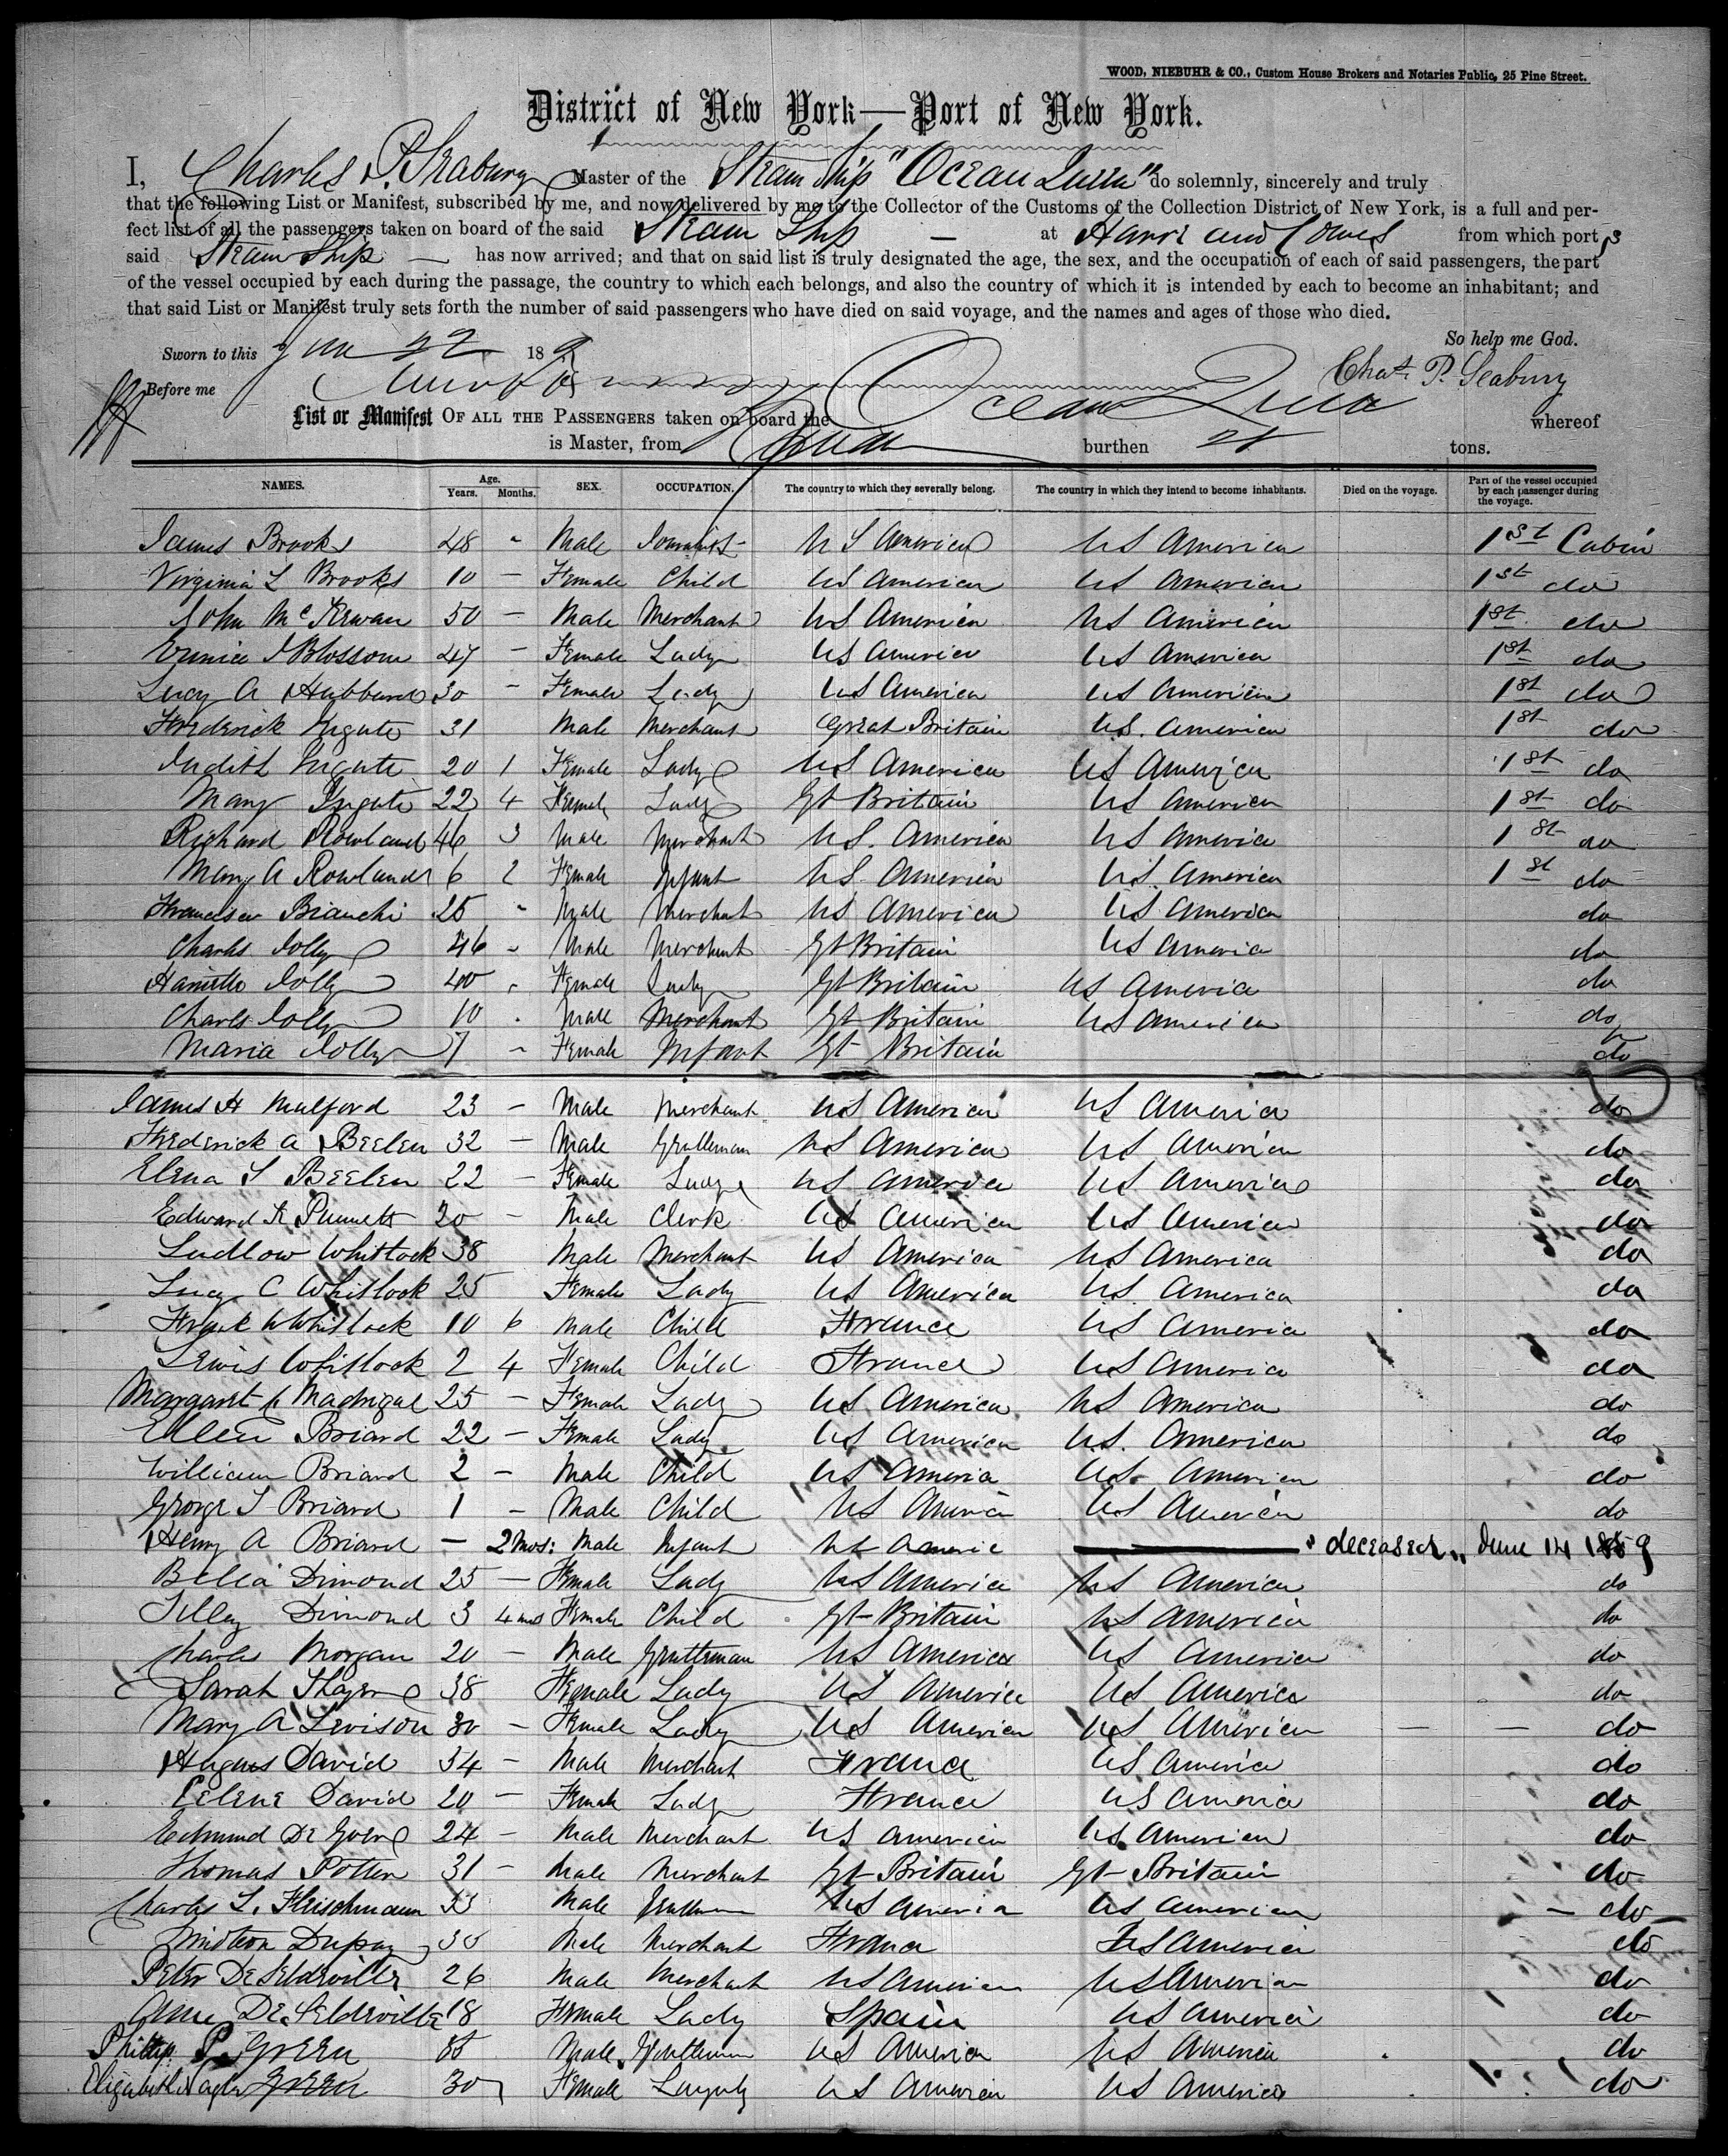 WOOD, NIEBUHR & CO., Custom House Brokers and Notaries Public, 25 Pine Street.
District of New York—Port of New York.
I, Charles P. Seabury Master of the Steam Ship "Ocean Queen" do solemnly, sincerely and truly
that the following List or Manifest, subscribed by me, and now delivered by me to the Collector of the Customs of the Collection District of New York, is a full and per-
fect list of all the passengers taken on board of the said Steam Ship — at Havre and Cowes from which ports
said Steam Ship — has now arrived; and that on said list is truly designated the age, the sex, and the occupation of each of said passengers, the part
of the vessel occupied by each during the passage, the country to which each belongs, and also the country of which it is intended by each to become an inhabitant; and
that said List or Manifest truly sets forth the number of said passengers who have died on said voyage, and the names and ages of those who died.
So help me God.
Sworn to this June 22 18 9
Chas. P. Seabury
Before me
List or Manifest OF ALL THE PASSENGERS taken on board the Ocean Queen whereof
is Master, from burthen tons.
NAMES. Age. Years. Months. SEX. OCCUPATION. The country to which they severally belong. The country in which they intend to become inhabitants. Died on the voyage. Part of the vessel occupied by each passenger during the voyage.
James Brooks 48 " Male Journalist U S America US America 1st Cabin
Virginia L Brooks 10 — Female Child US America US America 1st do
John McKerwan 50 — Male Merchant US America US America 1st do
Eunice I Blossom 47 — Female Lady US America US America 1st do
Lucy A Hubbard 30 — Female Lady US America US America 1st do
Frederick Ingate 31 Male Merchant Great Britain U.S. America 1st do
Judith Ingate 20 1 Female Lady US America US America 1st do
Mary Ingate 22 4 Female Lady Gt Britain US America 1st do
Richard Rowland 46 3 Male Merchant US. America US America 1st do
Mary A Rowland 6 2 Female Infant US America US America 1st do
Francisca Bianchi 25 " Male Merchant US America US America do
Charles Jolly 46 - Male Merchant Gt Britain US America do
Hariette Jolly 40 - Female Lady Gt Britain US America do
Charles Jolly 10 - Male Merchant Gt Britain US America do
Maria Jolly 7 - Female Infant Gt Britain do
James H Mulford 23 — Male Merchant US America US America do
Frederick A Beelen 32 — Male Gentleman US America US America do
Elena S Beelen 22 — Female Lady US America US America do
Edward R 20 — Male Clerk US America US America do
Ludlow Whitlock 38 Male Merchant US America US America do
Lucy C Whitlock 25 Female Lady US America US America do
Frank W Whitlock 10 6 Male Child France US America do
Lewis Whitlock 2 4 Female Child France US America do
Margaret Madrigal 25 — Female Lady US America US America do
Ellen Briard 22 — Female Lady US America U.S. America do
William Briard 2 — Male Child US America US America do
George S Briard 1 — Male Child US America US America do
Henry A Briard — 2 mos: Male Infant US America "deceased" June 14 1859
Bella Dimond 25 — Female Lady US America US America do
Tilley Dimond 3 4 mos Female Child Gt Britain US America do
Charles Morgan 20 — Male Gentleman US America US America do
Sarah Thayer 38 Female Lady US America US America do
Mary A Levison 30 — Female Lady US America US America — — do
Hugues David 34 — Male Merchant France US America do
Celene David 20 — Female Lady France US America do
Edmund De Goer 24 — Male Merchant US America US America do
Thomas Potter 31 — Male Merchant Gt Britain Gt Britain do
Charles L. Fleischmann 53 Male Gentleman US America US America — do
Dupuy 30 Male Merchant France US America do
Peter De 26 Male Merchant US America US America do
Anne De 18 Female Lady Spain US America do
Phillip P. Green Male Gentleman US America US America do
Elizabeth Green 30 Female US America US America do